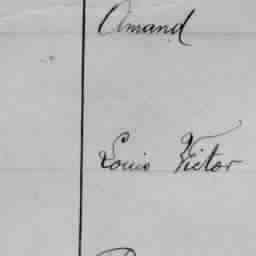 Amand
Louis Victor